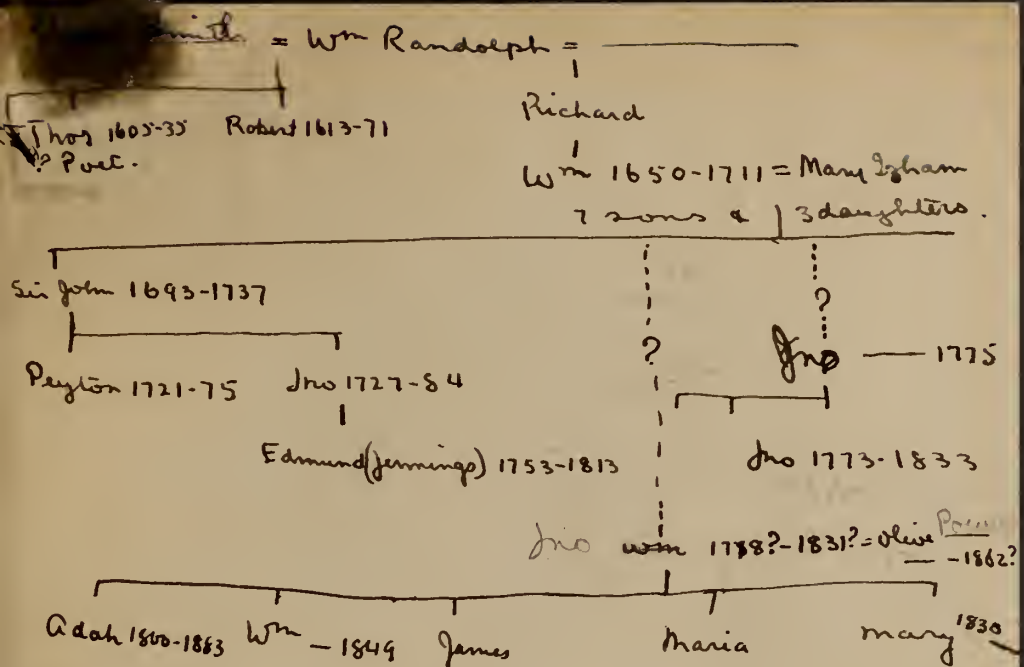 Smith = Wm Randolph =
Thos 1605-35 Robert 1613-71
? Poet.
Richard
Wm 1650-1711 = Mary Isham
7 sons & 3 daughters.
Sir John 1693-1737
?
?
Peyton 1721-75 Jno 1727-84
Jno — 1775
Edmund (Jennings) 1753-1813
Jno 1773-1833
Jno Wm 1788?-1831? = Olive
— -1862?
Adah 1800-1883 Wm — 1849 James Maria Mary 1830